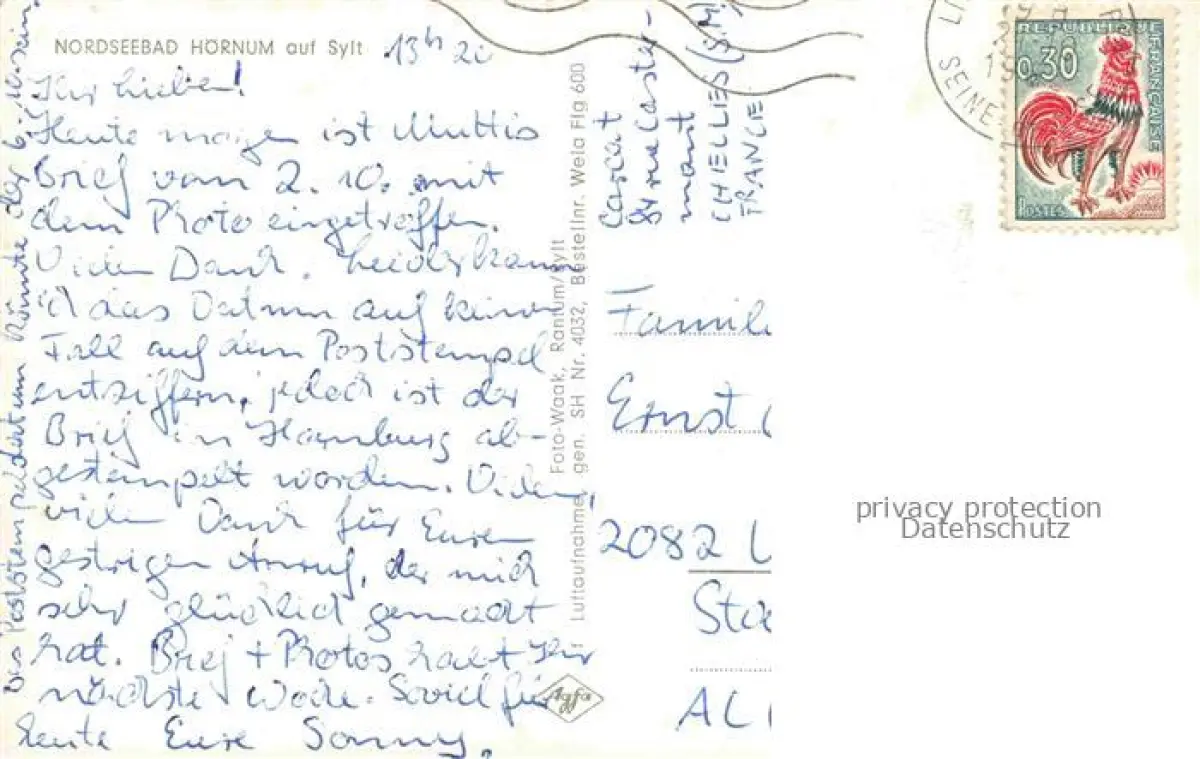 NORDSEEBAD HÖRNUM auf Sylt
13h 20
Ihr Lieben!
Heute morgen ist Muttis
Brief vom 2. 10. mit
dem Photo eingetroffen.
Vielen Dank leider kann
das Datum auf keinen
Fall auf dem Poststempel
entziffern, jedoch ist der
Brief in Hamburg ab-
gestempelt worden. Vielen,
vielen Dank für Euren
gestrigen Anruf, der mich
sehr glücklich gemacht
hat. Brief + Photos habt Ihr
nächste Woche. Soviel für
heute Eure Sonny.
Poststempeldatum könnte der
Foto-Waak, Rantum/Sylt
Luftaufnahme, gen. SH Nr. 4032, Bestellnr. Wela Flg 600
Agfa
CHELLES (S.M)
FRANCE
Famil
Ernst
2082
Sta
AL
SEINE
REPUBLIQUE FRANÇAISE
0,30
POSTES
privacy protection
Datenschutz